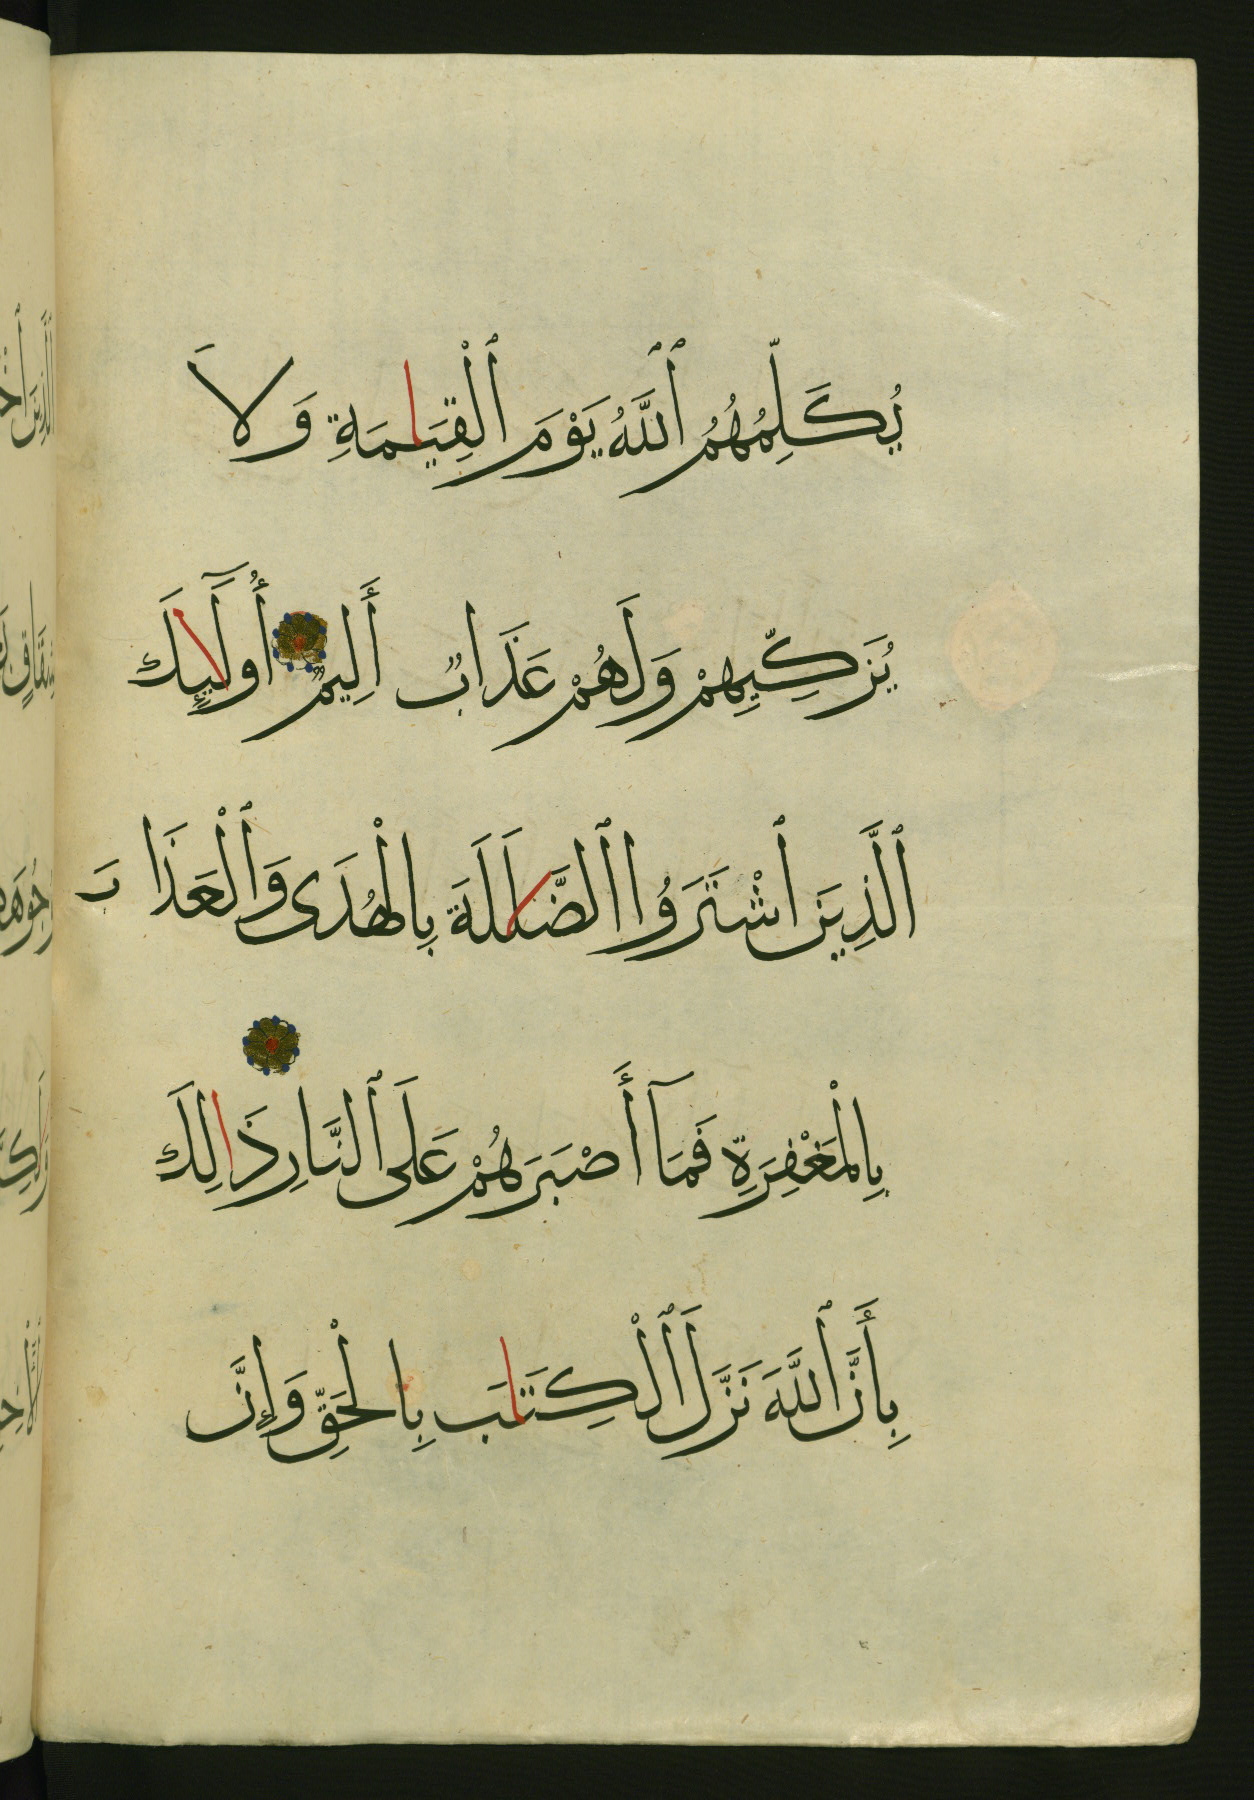 يُكَلِّمُهُمُ ٱللَّهُ يَوْمَ ٱلْقِيَٰمَةِ وَلَا
يُزَكِّيهِمْ وَلَهُمْ عَذَابٌ أَلِيمٌ أُولَٰٓئِكَ
ٱلَّذِينَ ٱشْتَرَوُا ٱلضَّلَٰلَةَ بِالْهُدَى وَٱلْعَذَابَ
بِالْمَغْفِرَةِ فَمَآ أَصْبَرَهُمْ عَلَى ٱلنَّارِ ذَٰلِكَ
بِأَنَّ ٱللَّهَ نَزَّلَ ٱلْكِتَٰبَ بِالْحَقِّ وَإِنَّ